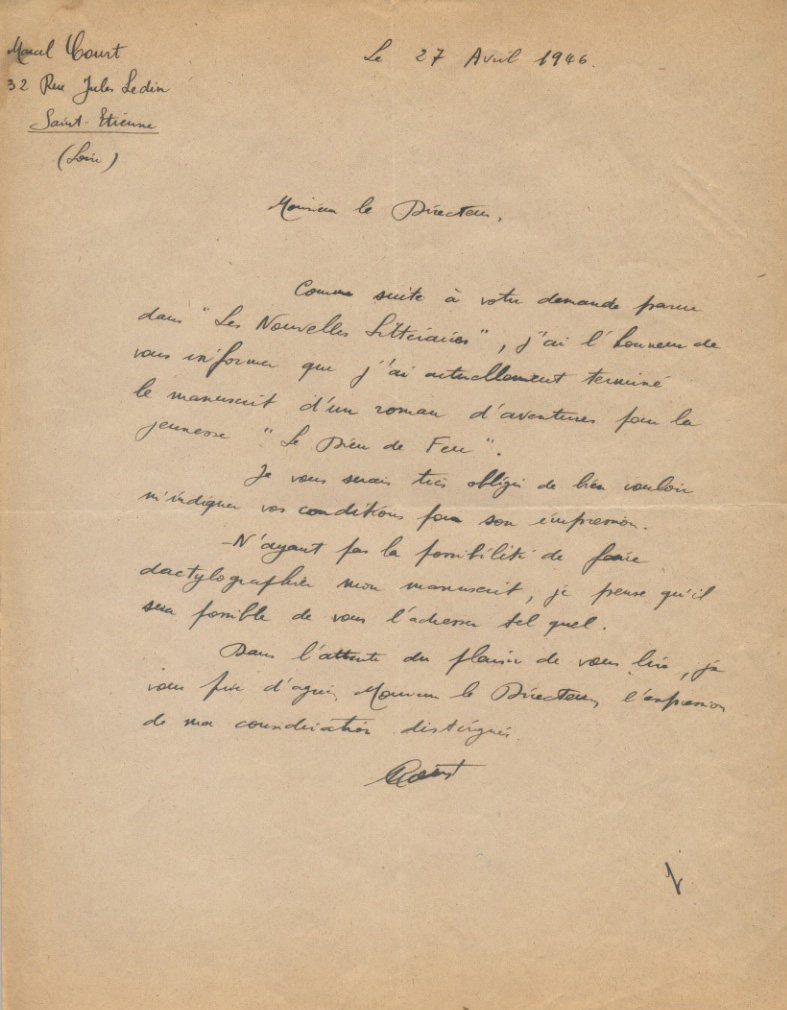 Marcel Court
32 Rue Jules Ledin
Saint-Etienne
(Loire)
Le 27 Avril 1946.
Monsieur le Directeur,
Comme suite à votre demande parue
dans "Les Nouvelles Littéraires", j'ai l'honneur de
vous informer que j'ai actuellement terminé
le manuscrit d'un roman d'aventures pour la
jeunesse "Le Dieu de Feu".
Je vous serais très obligé de bien vouloir
m'indiquer vos conditions pour son impression.
-N'ayant pas la possibilité de faire
dactylographier mon manuscrit, je pense qu'il
sera possible de vous l'adresser tel quel.
Dans l'attente du plaisir de vous lire, je
vous prie d'agréer, Monsieur le Directeur, l'expression
de ma considération distinguée.
Court